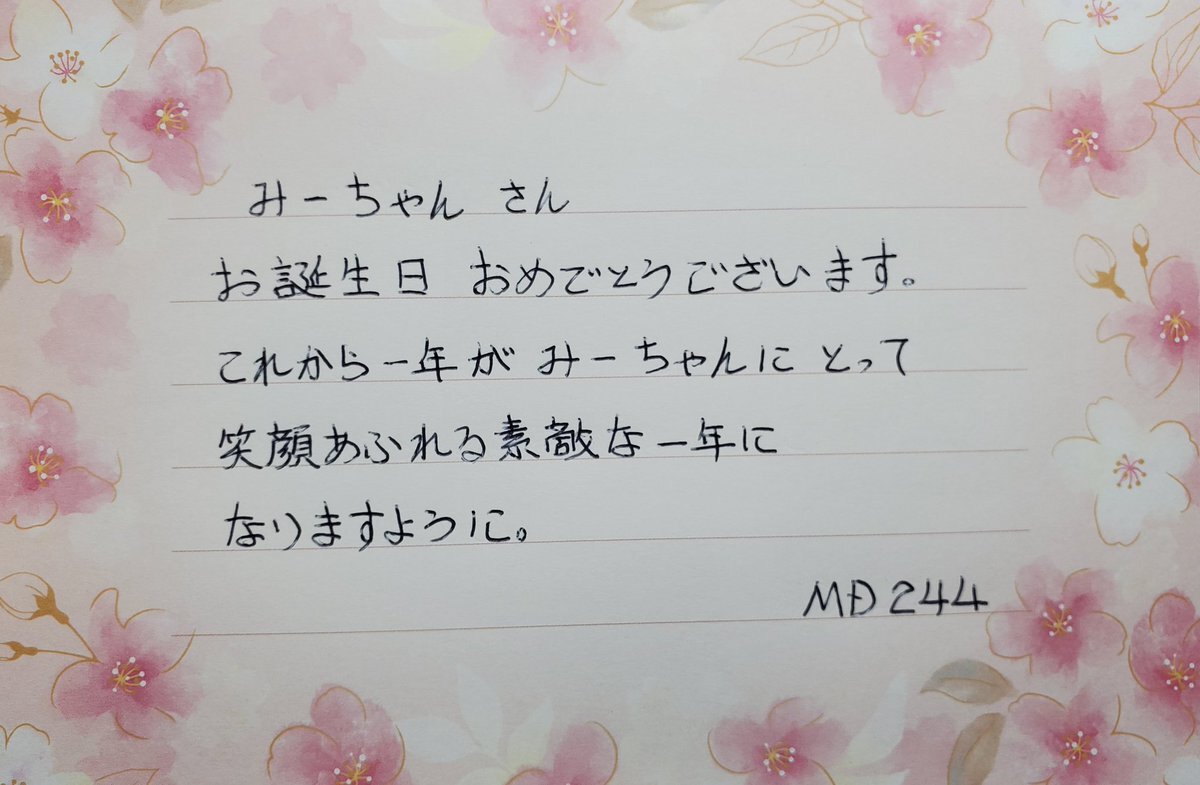 みーちゃん さん
お誕生日 おめでとうございます。
これから一年が みーちゃんに とって
笑顔あふれる素敵な一年に
なりますように。
MD244